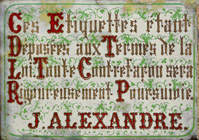 Ces Etiquettes étant
Déposées aux Termes de la
Loi, Toute Contrefaçon sera
Rigoureusement Poursuivie.
J. ALEXANDRE.